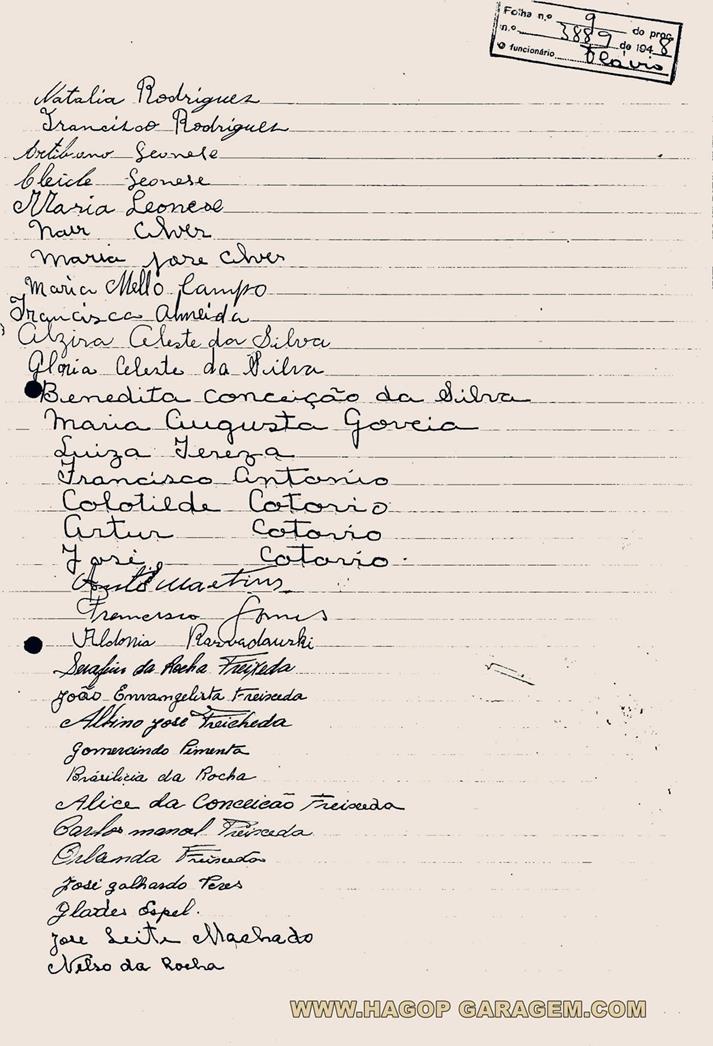 Folha n.º 9 do proc.
n.º 3889 de 1948
O funcionário Flavio
Natalia Rodrigues
Francisco Rodrigues
Leonese
Cleide Leonese
Maria Leonese
Nair Alves
Maria Jose Alves
Maria Mello Campo
Francisca Almeida
Alzira Celeste da Silva
Gloria Celeste da Silva
Benedita conceição da Silva
Maria Augusta Goveia
Luiza Tereza
Francisco Antonio
Colotilde Cotovio
Artur Cotovio
José Cotovio.
Martins
Francisco Gomes
Aldonia
Serafim da Rocha Freixeda
João Envangelista Freixeda
Albino José Freicheda
Gomercindo Pimenta
Brasilicia da Rocha
Alice da Conceicão Freixeda
Carlos manoel Freixeda
Orlanda Freixeda
José galhardo Peres
Glades Espel.
Jose Leite Machado
Nelso da Rocha
WWW.HAGOP GARAGEM.COM